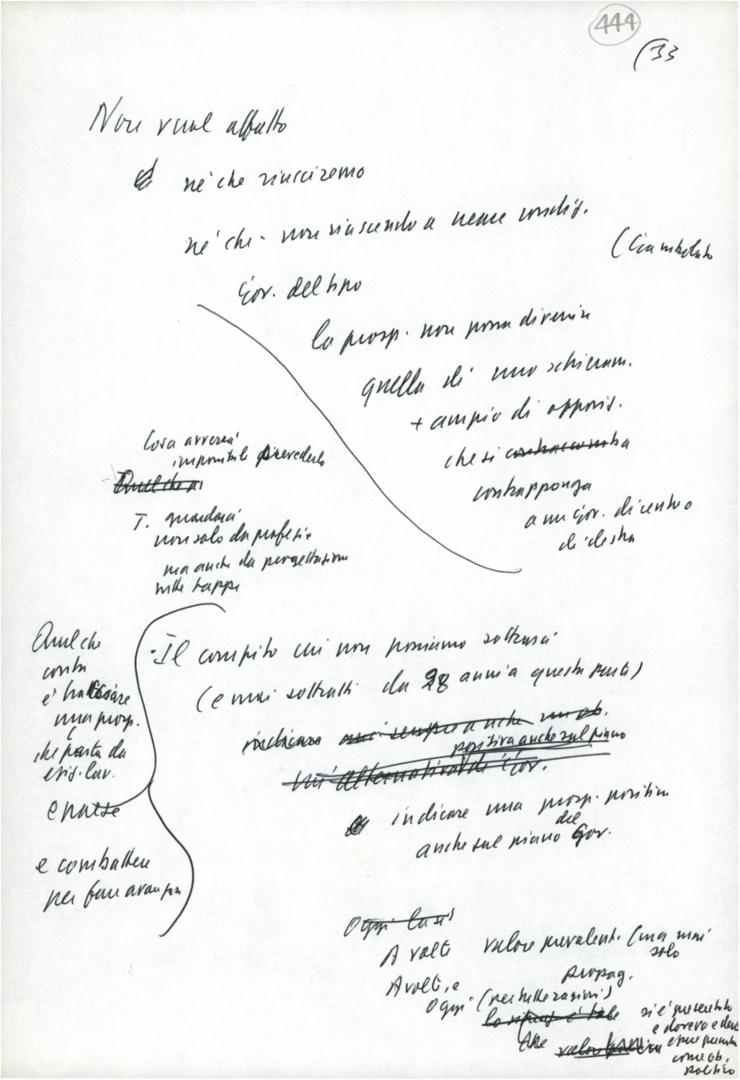 444
(33
Non vuol affatto
né che riusciremo
né che - non riuscendo a
gov. del tipo
la prosp. non possa divenire
quella di uno schieram.
+ ampio di opposiz.
che si
contrapponga
a un gov. di centro o
di destra
Cosa avverrà
impossibile prevederlo
T. guardarsi
non solo da profezie
ma anche da progettazioni
nelle tappe
Quel che
conta
è tracciare
una prosp.
che parta da
esig. lav.
e paese
e combattere
per farla avanzare
Il compito cui non possiamo sottrarci
(e mai sottratti da 28 anni a questa parte)
indicare
positiva anche sul piano
indicare una prosp. positiva
anche sul piano del Gov.
Oggi
A volte valore prevalent. (ma mai
solo
propag.
A volte, e
Oggi (per molte ragioni)
si è presentata
e doveva e deve
che
come ob.
politico